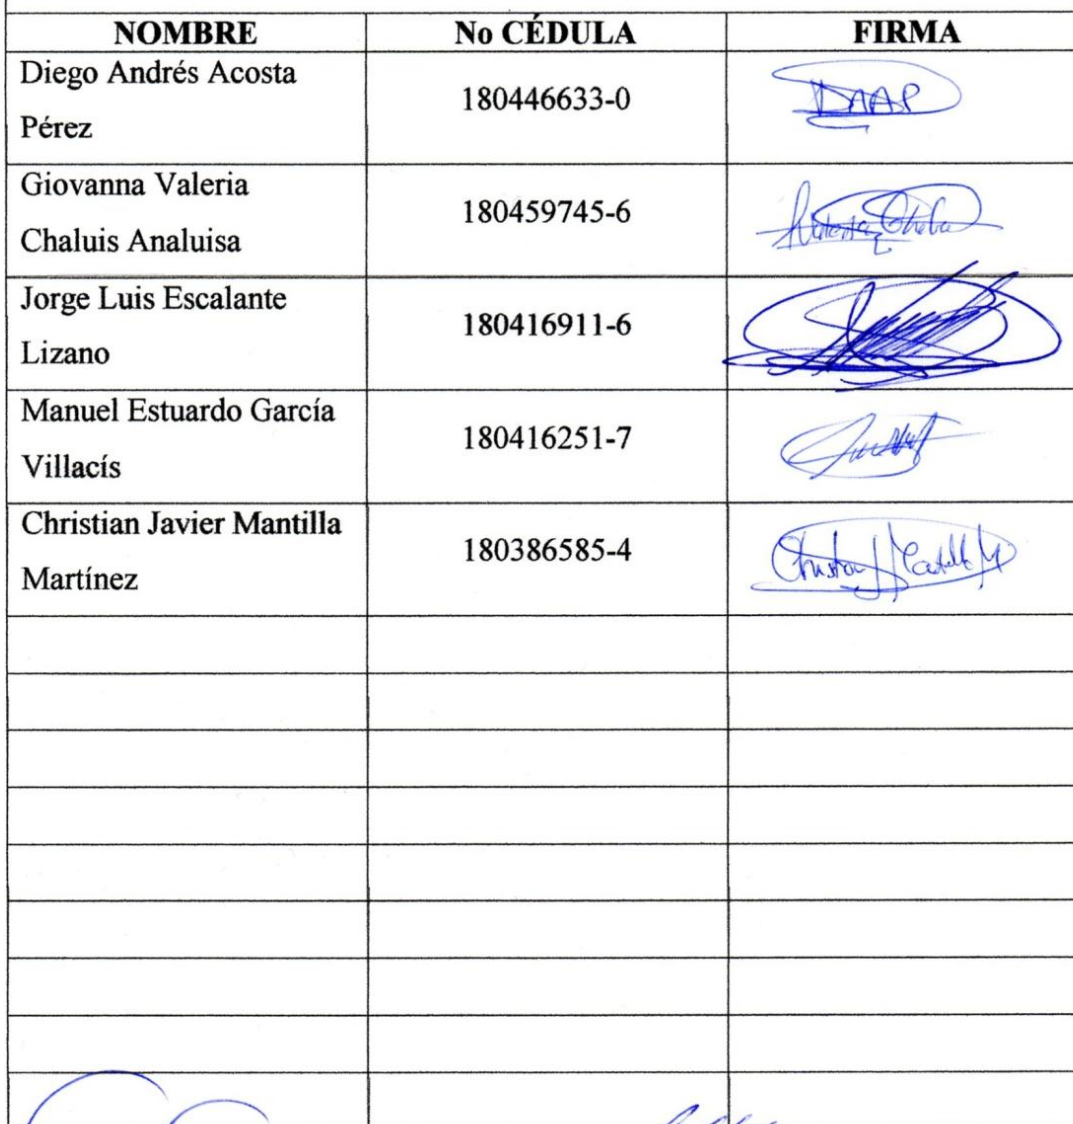 NOMBRE No CÉDULA FIRMA
Diego Andrés Acosta
Pérez
180446633-0
DAAP
Giovanna Valeria
Chaluis Analuisa
180459745-6
Jorge Luis Escalante
Lizano
180416911-6
Manuel Estuardo García
Villacís
180416251-7
Christian Javier Mantilla
Martínez
180386585-4